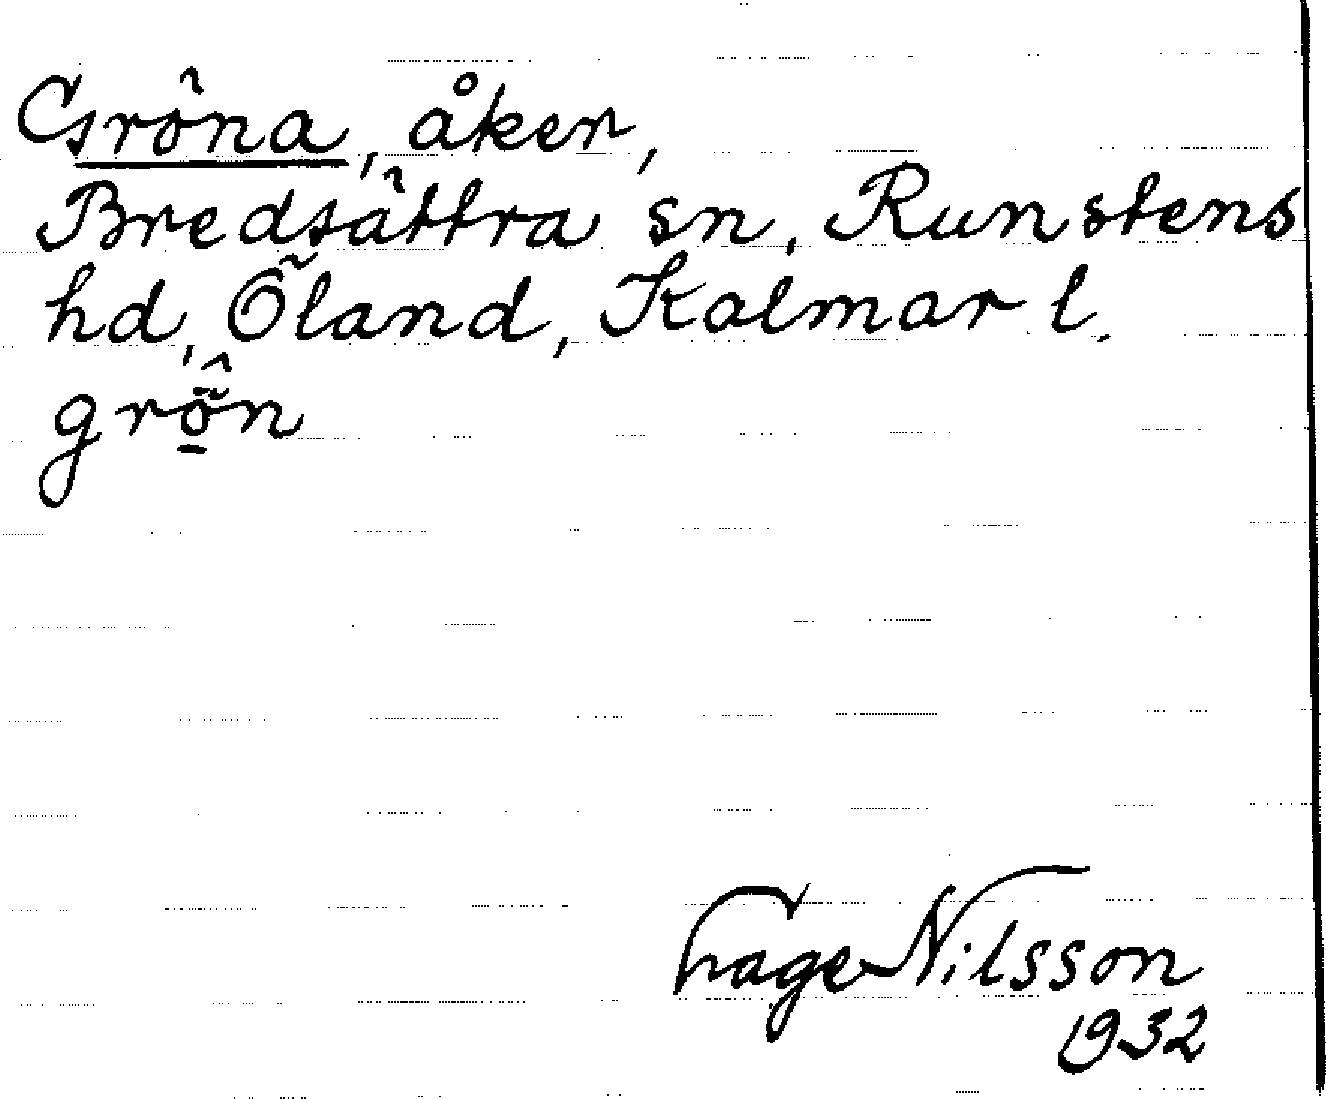 Gröna, åker,
Bredsättra sn, Runstens
hd, Öland, Kalmar l.
grö̱̂n
Hage Nilsson
1932